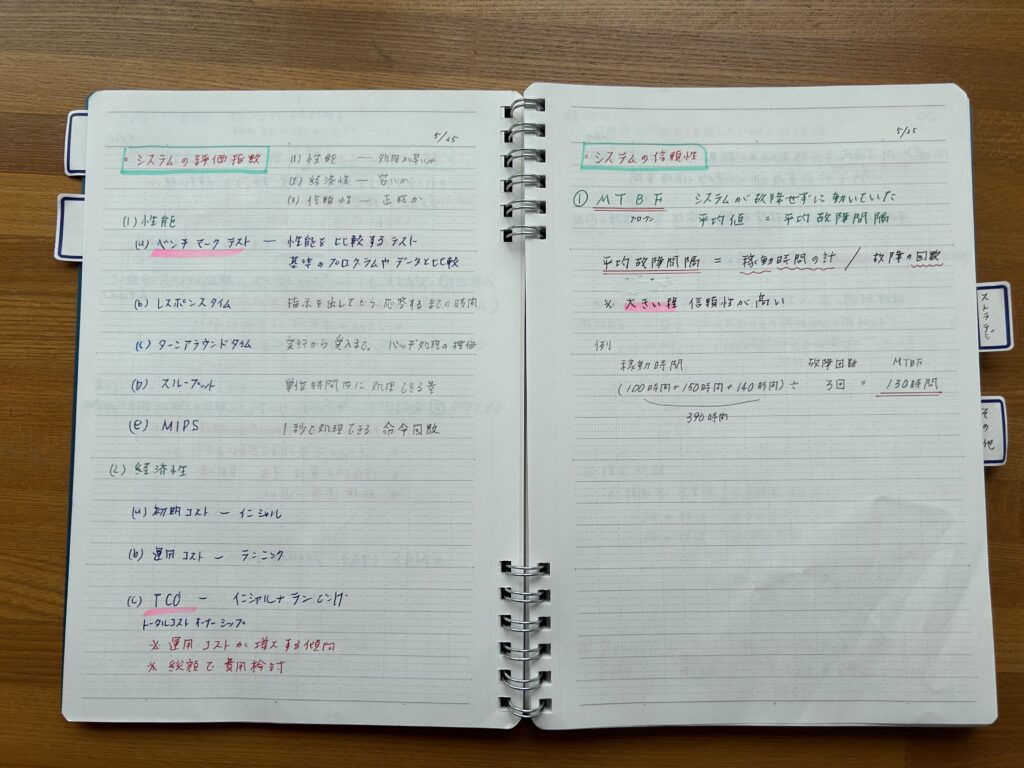 5/25
・システムの評価指数
(1) 性能 ― 処理が早いか
(2) 経済性 ― 安いか
(3) 信頼性 ― 正確か
(1) 性能
(a) ベンチマークテスト ― 性能を比較するテスト
基準のプログラムやデータと比較
(b) レスポンスタイム 指示を出してから応答するまでの時間
(c) ターンアラウンドタイム 実行から受入まで。バッチ処理の評価
(d) スループット 単位時間内に処理できる量
(e) MIPS 1秒で処理できる命令回数
(2) 経済性
(a) 初期コスト ― イニシャル
(b) 運用コスト ― ランニング
(c) TCO ― イニシャル+ランニング
トータルコストオーナーシップ
※ 運用コストが増大する傾向
※ 総額で費用検討
5/25
・システムの信頼性
① MTBF システムが故障せずに動いていた
平均値 = 平均故障間隔
平均故障間隔 = 稼動時間の計 / 故障の回数
※ 大きい程 信頼性が高い
例)
稼動時間 故障回数 MTBF
(100時間+150時間+140時間) ÷ 3回 = 130時間
390時間
ストラテジ
その他